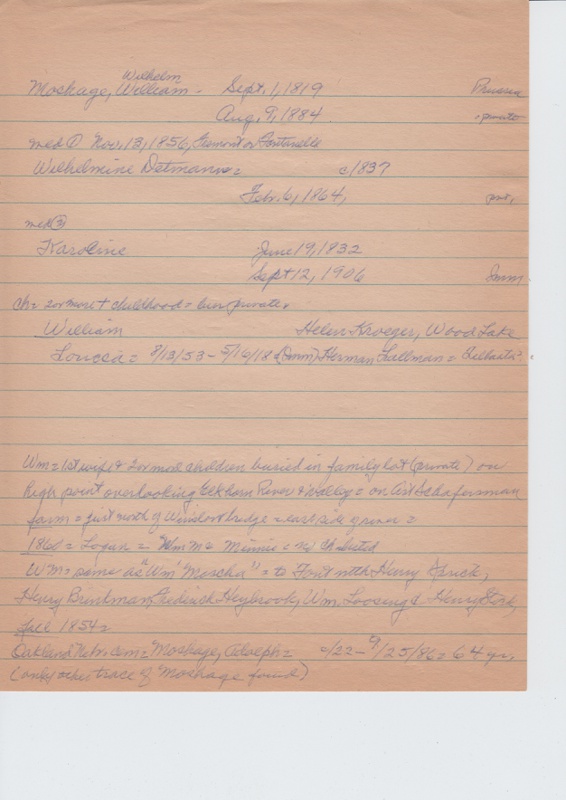 Wilhelm
Moshage, William - Sept. 1, 1819 Prussia
Aug. 9, 1884 private
med ① Nov. 13, 1856, Fremont or Fontanelle
Wilhelmine Detmann = c/1837
Feb. 6, 1864, pvt.
med ②
Karoline June 19, 1832
Sept 12, 1906 Imm.
Ch = 2 or more + childhood = bur private.
William Helen Kroeger, Wood Lake
Louisa = 8/13/53 - 5/16/18 (Imm) Herman =
Wm = 1st wife & 2 or more children buried in family lot (private) on
high point overlooking Elkhorn River & Valley = on Art Schaferman
farm = just north of Winslow bridge = east side of river =
1860 = Logan = Wm M = Minnie = no ch listed
Wm = same as "Wm Moscha" = to Font with Henry
Henry Brinkman, Frederick Heybrook, Wm. Loosing & Henry Stork,
fall 1854 =
Oakland Nebr. cem = Moshage, Adolph = c/22 - 9/25/86 = 64 yr.
(only other trace of Moshage found)